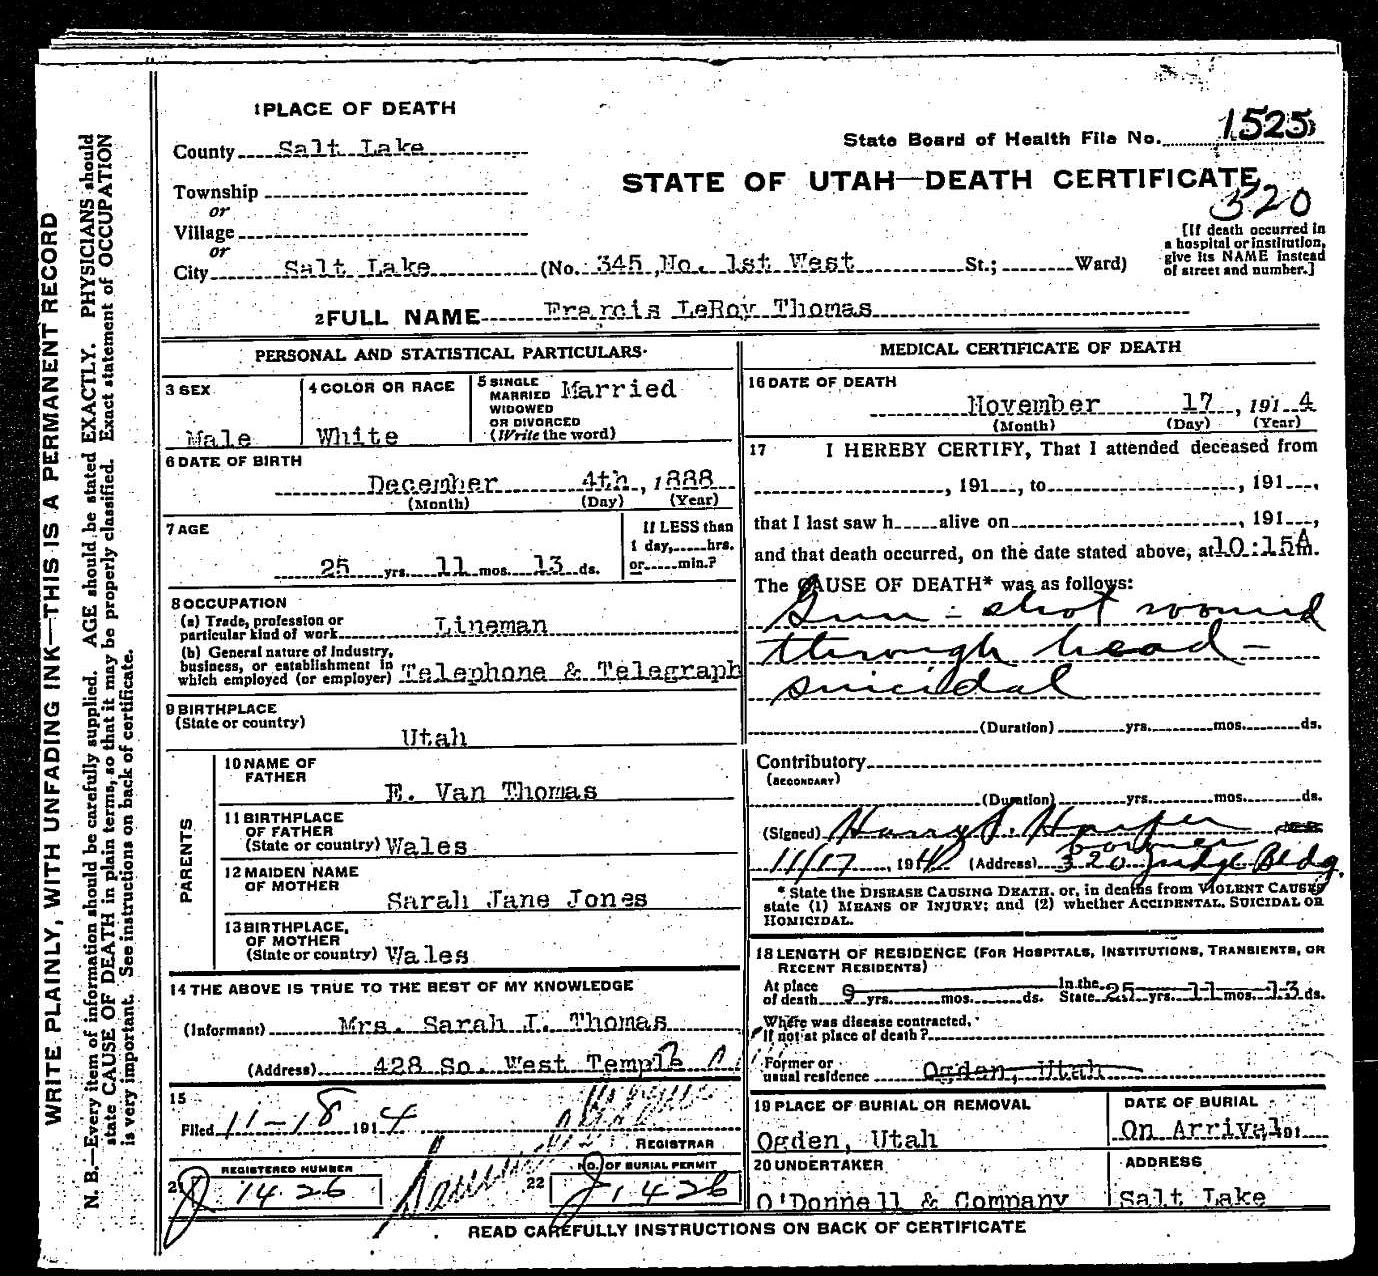 1 PLACE OF DEATH
County Salt Lake
State Board of Health File No. 1525
Township
or
STATE OF UTAH—DEATH CERTIFICATE
320
Village
or
City Salt Lake (No. 345 No. 1st West St.; Ward)
[If death occurred in
a hospital or institution,
give its NAME instead
of street and number.]
2 FULL NAME Francis LeRoy Thomas
PERSONAL AND STATISTICAL PARTICULARS
3 SEX
Male
4 COLOR OR RACE
White
5 SINGLE
MARRIED
WIDOWED
OR DIVORCED
(Write the word)
Married
6 DATE OF BIRTH
December 4th, 1888
(Month) (Day) (Year)
7 AGE
25 yrs. 11 mos. 13 ds.
If LESS than
1 day, hrs.
or min.?
8 OCCUPATION
(a) Trade, profession or
particular kind of work Lineman
(b) General nature of Industry,
business, or establishment in
which employed (or employer) Telephone & Telegraph
9 BIRTHPLACE
(State or country)
Utah
PARENTS
10 NAME OF
FATHER
E. Van Thomas
11 BIRTHPLACE
OF FATHER
(State or country) Wales
12 MAIDEN NAME
OF MOTHER
Sarah Jane Jones
13 BIRTHPLACE,
OF MOTHER
(State or country) Wales
14 THE ABOVE IS TRUE TO THE BEST OF MY KNOWLEDGE
(Informant) Mrs. Sarah J. Thomas
(Address) 428 So. West Temple
15
Filed 11-18 1914
REGISTRAR
REGISTERED NUMBER
21 1426
NO. OF BURIAL PERMIT
22 1426
MEDICAL CERTIFICATE OF DEATH
16 DATE OF DEATH
November 17, 1914
(Month) (Day) (Year)
17 I HEREBY CERTIFY, That I attended deceased from
, 191 , to , 191 ,
that I last saw h alive on , 191 ,
and that death occurred, on the date stated above, at 10:15 A m.
The CAUSE OF DEATH* was as follows:
Gun-shot wound
through head -
suicidal
(Duration) yrs. mos. ds.
Contributory
(SECONDARY)
(Duration) yrs. mos. ds.
(Signed) Harry S. Harper
Coroner
11/17, 1914 (Address) 320 Judge Bldg.
* State the DISEASE CAUSING DEATH, or, in deaths from VIOLENT CAUSES
state (1) MEANS OF INJURY; and (2) whether ACCIDENTAL, SUICIDAL OR
HOMICIDAL.
18 LENGTH OF RESIDENCE (FOR HOSPITALS, INSTITUTIONS, TRANSIENTS, OR
RECENT RESIDENTS)
At place
of death 9 yrs. mos. ds.
In the
State 25 yrs. 11 mos. 13 ds.
Where was disease contracted,
if not at place of death?
Former or
usual residence Ogden, Utah
19 PLACE OF BURIAL OR REMOVAL
Ogden, Utah
DATE OF BURIAL
On Arrival, 191
20 UNDERTAKER
O'Donnell & Company
ADDRESS
Salt Lake
READ CAREFULLY INSTRUCTIONS ON BACK OF CERTIFICATE
WRITE PLAINLY, WITH UNFADING INK—THIS IS A PERMANENT RECORD
N. B.—Every item of information should be carefully supplied. AGE should be stated EXACTLY. PHYSICIANS should
state CAUSE OF DEATH in plain terms, so that it may be properly classified. Exact statement of OCCUPATION
is very important. See instructions on back of certificate.